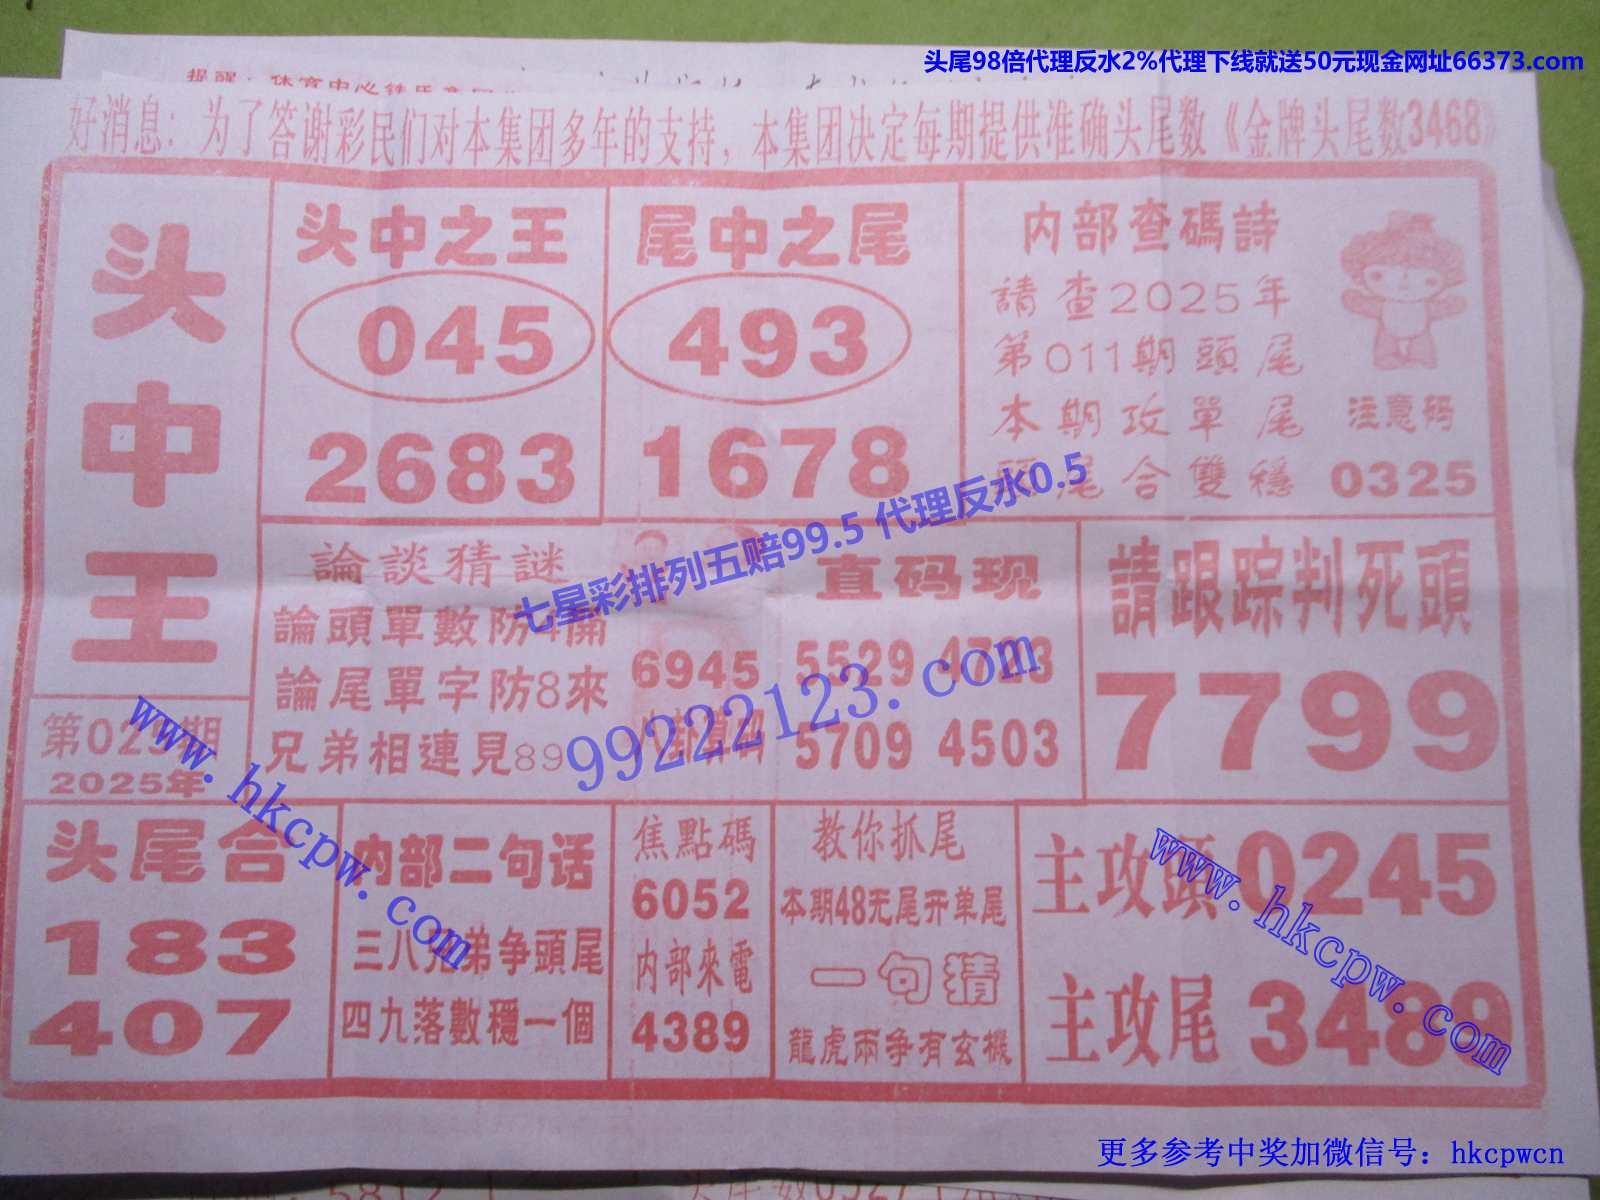 头尾98倍代理反水2%代理下线就送50元现金网址66373.com
好消息：为了答谢彩民们对本集团多年的支持，本集团决定每期提供准确头尾数《金牌头尾数3468》
头中王
第029期
2025年
头中之王
045
2683
尾中之尾
493
1678
内部查碼詩
請查2025年
第011期頭尾
本期攻單尾
頭尾合雙穩
注意码
0325
七星彩排列五赔99.5 代理反水0.5
論談猜謎
論頭單數防4開
論尾單字防8來
兄弟相連見89
6945
直码现
5529 4723
5709 4503
99222123.com
請跟踪判死頭
7799
www.hkcpw.com
头尾合
183
407
内部二句话
三八兄弟争頭尾
四九落數穩一個
焦點碼
6052
内部來電
4389
教你抓尾
本期48无尾开单尾
一句猜
龍虎兩争有玄機
主攻頭0245
主攻尾3489
www.hkcpw.com
更多参考中奖加微信号：hkcpwcn